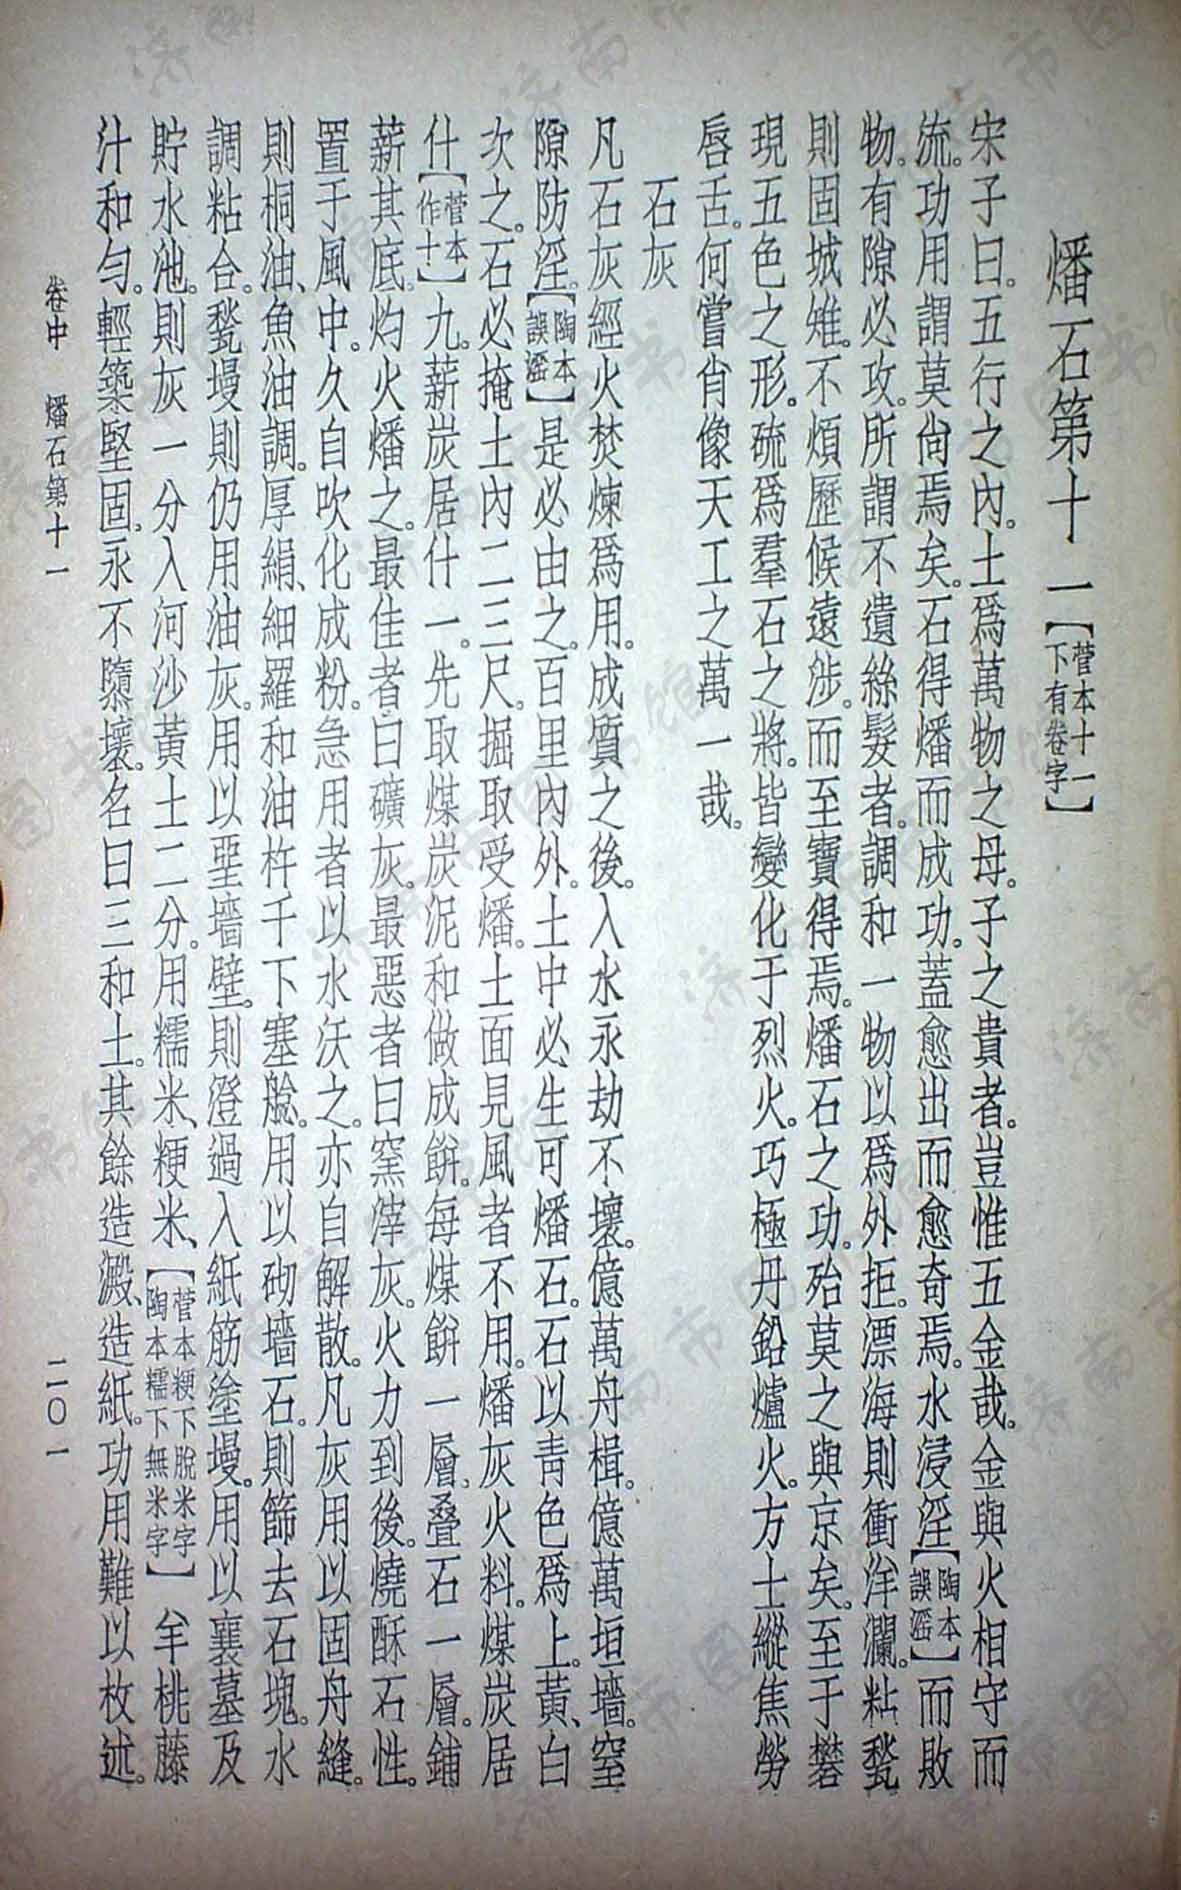 燔石第十一【菅本十一下有卷字】
宋子曰。五行之內。土爲萬物之母。子之貴者。豈惟五金哉。金與火相守而
流。功用謂莫尙焉矣。石得燔而成功。蓋愈出而愈奇焉。水浸淫【陶本誤滛】而敗
物。有隙必攻。所謂不遺絲髮者。調和一物以爲外拒。漂海則衝洋瀾。粘甃
則固城雉。不煩歷候遠涉。而至寶得焉。燔石之功。殆莫之與京矣。至于礬
現五色之形。硫爲羣石之將。皆變化于烈火。巧極丹鉛爐火。方士縱焦勞
唇舌。何嘗肖像天工之萬一哉。
石灰
凡石灰經火焚煉爲用。成質之後。入水永劫不壞。億萬舟楫。億萬垣墻。窒
隙防淫。【陶本誤滛】是必由之。百里內外。土中必生可燔石。石以靑色爲上。黃、白
次之。石必掩土內二三尺。掘取受燔。土面見風者不用。燔灰火料。煤炭居
什【菅本作十】九。薪炭居什一。先取煤炭泥和做成餅。每煤餅一層、叠石一層。鋪
薪其底。灼火燔之。最佳者曰礦灰。最惡者曰窯滓灰。火力到後。燒酥石性。
置于風中。久自吹化成粉。急用者以水沃之。亦自解散。凡灰用以固舟縫。
則桐油、魚油調。厚絹、細羅和油杵千下塞艌。用以砌墻石。則篩去石塊。水
調粘合。甃墁則仍用油灰。用以堊墻壁。則澄過入紙筋塗墁。用以襄墓及
貯水池。則灰一分入河沙黃土二分。用糯米、粳米、【菅本粳下脫米字陶本糯下無米字】羊桃藤
汁和勻。輕築堅固。永不隳壞。名曰三和土。其餘造澱、造紙。功用難以枚述。
卷中　燔石第十一
二〇一
济南市图书馆